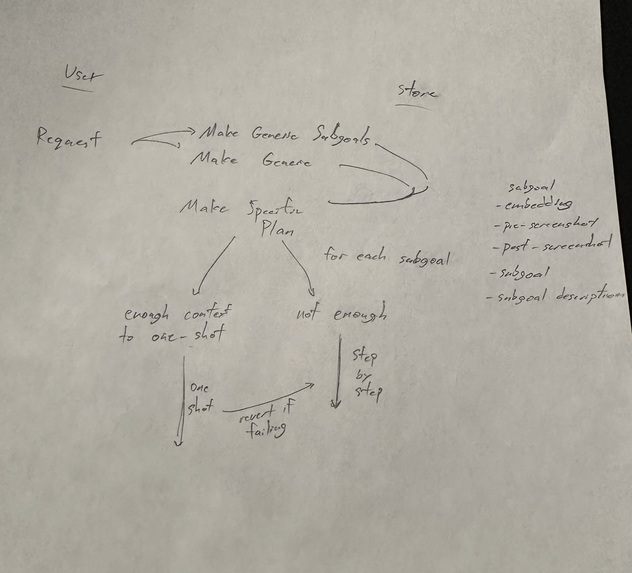 User
Store
Request
Make Generic Subgoals
Make Generic
Make Specific
Plan
for each subgoal
subgoal
- embedding
- pre-screenshot
- post-screenshot
- subgoal
- subgoal description
enough context
to one-shot
not enough
one
shot
revert if
failing
step
by
step